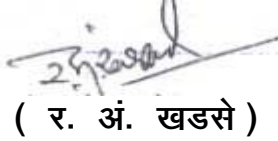 ( र. अं. खडसे )